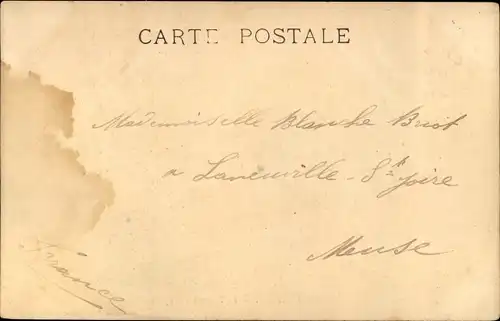 CARTE POSTALE
Mademoiselle Blanche Briot
a Laneuville-St Joire
Meuse
France